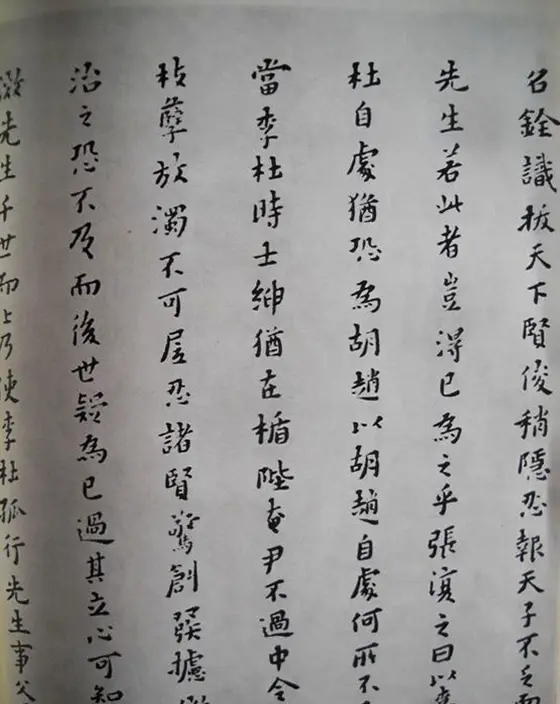 名銓識拔天下賢俊稍隱忍報天子不乏而
先生若此者豈得已為之乎張濱之曰以李
杜自處猶恐為胡趙以胡趙自處何所不
當李杜時士紳猶在楯陛奄尹不過中令
枝孽放濁不可居忍諸賢驚創發攄
治之恐不及而後世疑為已過其立心可知
激先生千世而上乃使李杜孤行先生事父